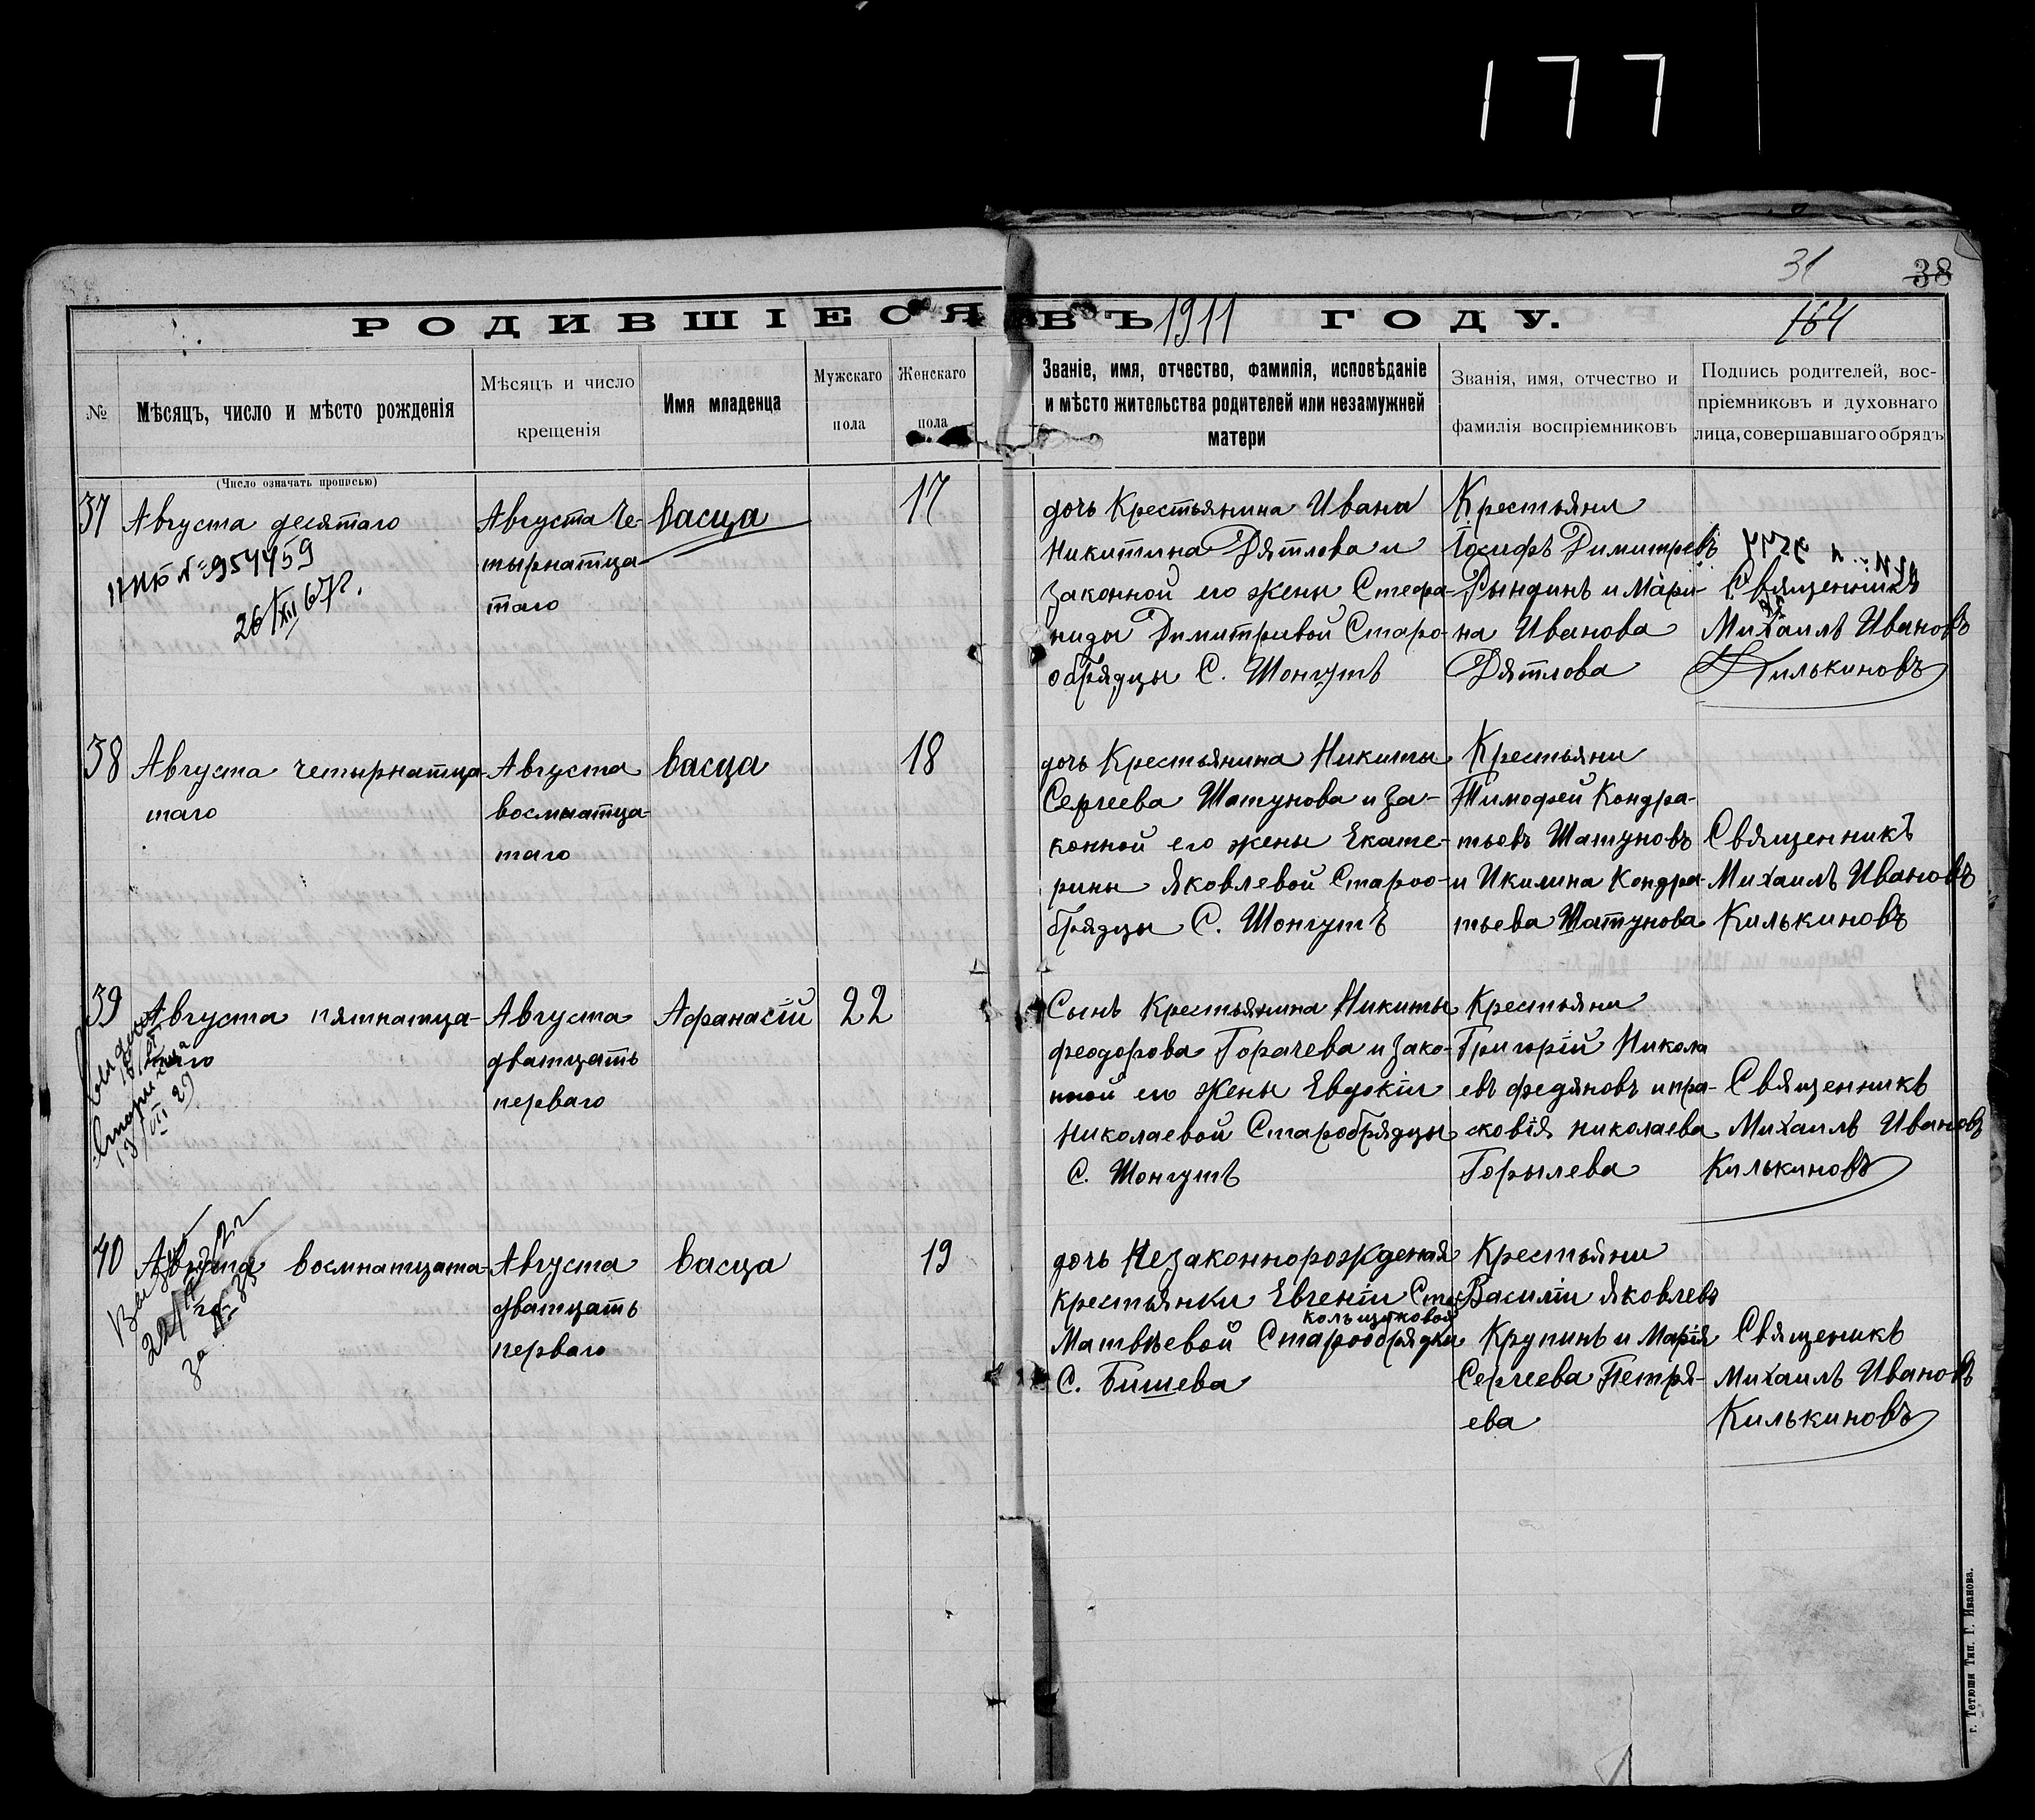 177
31
38
РОДИВШІЕСЯ ВЪ 1911 ГОДУ.
164
№
Мѣсяцъ, число и мѣсто рожденія
Мѣсяцъ и число
крещенія
Имя младенца
Мужскаго
пола
Женскаго
пола
Званіе, имя, отчество, фамилія, исповѣданіе
и мѣсто жительства родителей или незамужней
матери
Званія, имя, отчество и
фамилія воспріемниковъ
Подпись родителей, вос-
пріемниковъ и духовнаго
лица, совершавшаго обрядъ
(Число означать прописью)
37
Августа десятаго
№ 954459
26/XII 67г.
Августа че-
тырнатца-
таго
васца
17
дочь Крестьянина Ивана
Никитина Дятлова и
законной его жены Стефа-
ниды Димитривой Старо-
обрядцы С. Шонгутѣ
Крестьяни
Іосифъ Димитревъ
Рындинъ и Мари-
на Иванова
Дятлова
Священникъ
Михаилъ Ивановъ
Килькиновъ
38
Августа четырнатца-
таго
Августа
восмнатца-
таго
васца
18
дочь Крестьянина Никиты
Сергеева Шатунова и за-
конной его жены Екате-
рины Яковлевой Староо-
брядцы С. Шонгутѣ
Крестьяни
Тимофей Кондра-
тьевъ Шатуновъ
и Икилина Кондра-
тьева Шатунова
Священникъ
Михаилъ Ивановъ
Килькиновъ
39
Августа пятнатца-
таго
13/VII 29
Августа
дватцать
перваго
Афанасій
22
Сынъ Крестьянина Никиты
Феодорова Горачева и зако-
ной его жены Евдокіи
Николаевой Старобрядцы
С. Шонгутѣ
Крестьяни
Григорій Никола
евъ Федяновъ и пра-
сковія николаева
Горылева
Священникъ
Михаилъ Ивановъ
Килькиновъ
40
Августа восмнатцата-
за №
Августа
дватцать
перваго
васца
19
дочь Незаконнорожденая
крестьянки Евгеніи Ста
кольщиковой
Матвѣевой Старообрядки
С. Бишева
Крестьяни
Василіи Яковлевъ
Крупинъ и Марія
Сергеева Петря-
ева
Священикъ
Михаилъ Ивановъ
Килькиновъ
г. Тетюши Тип. Г. Иванова.